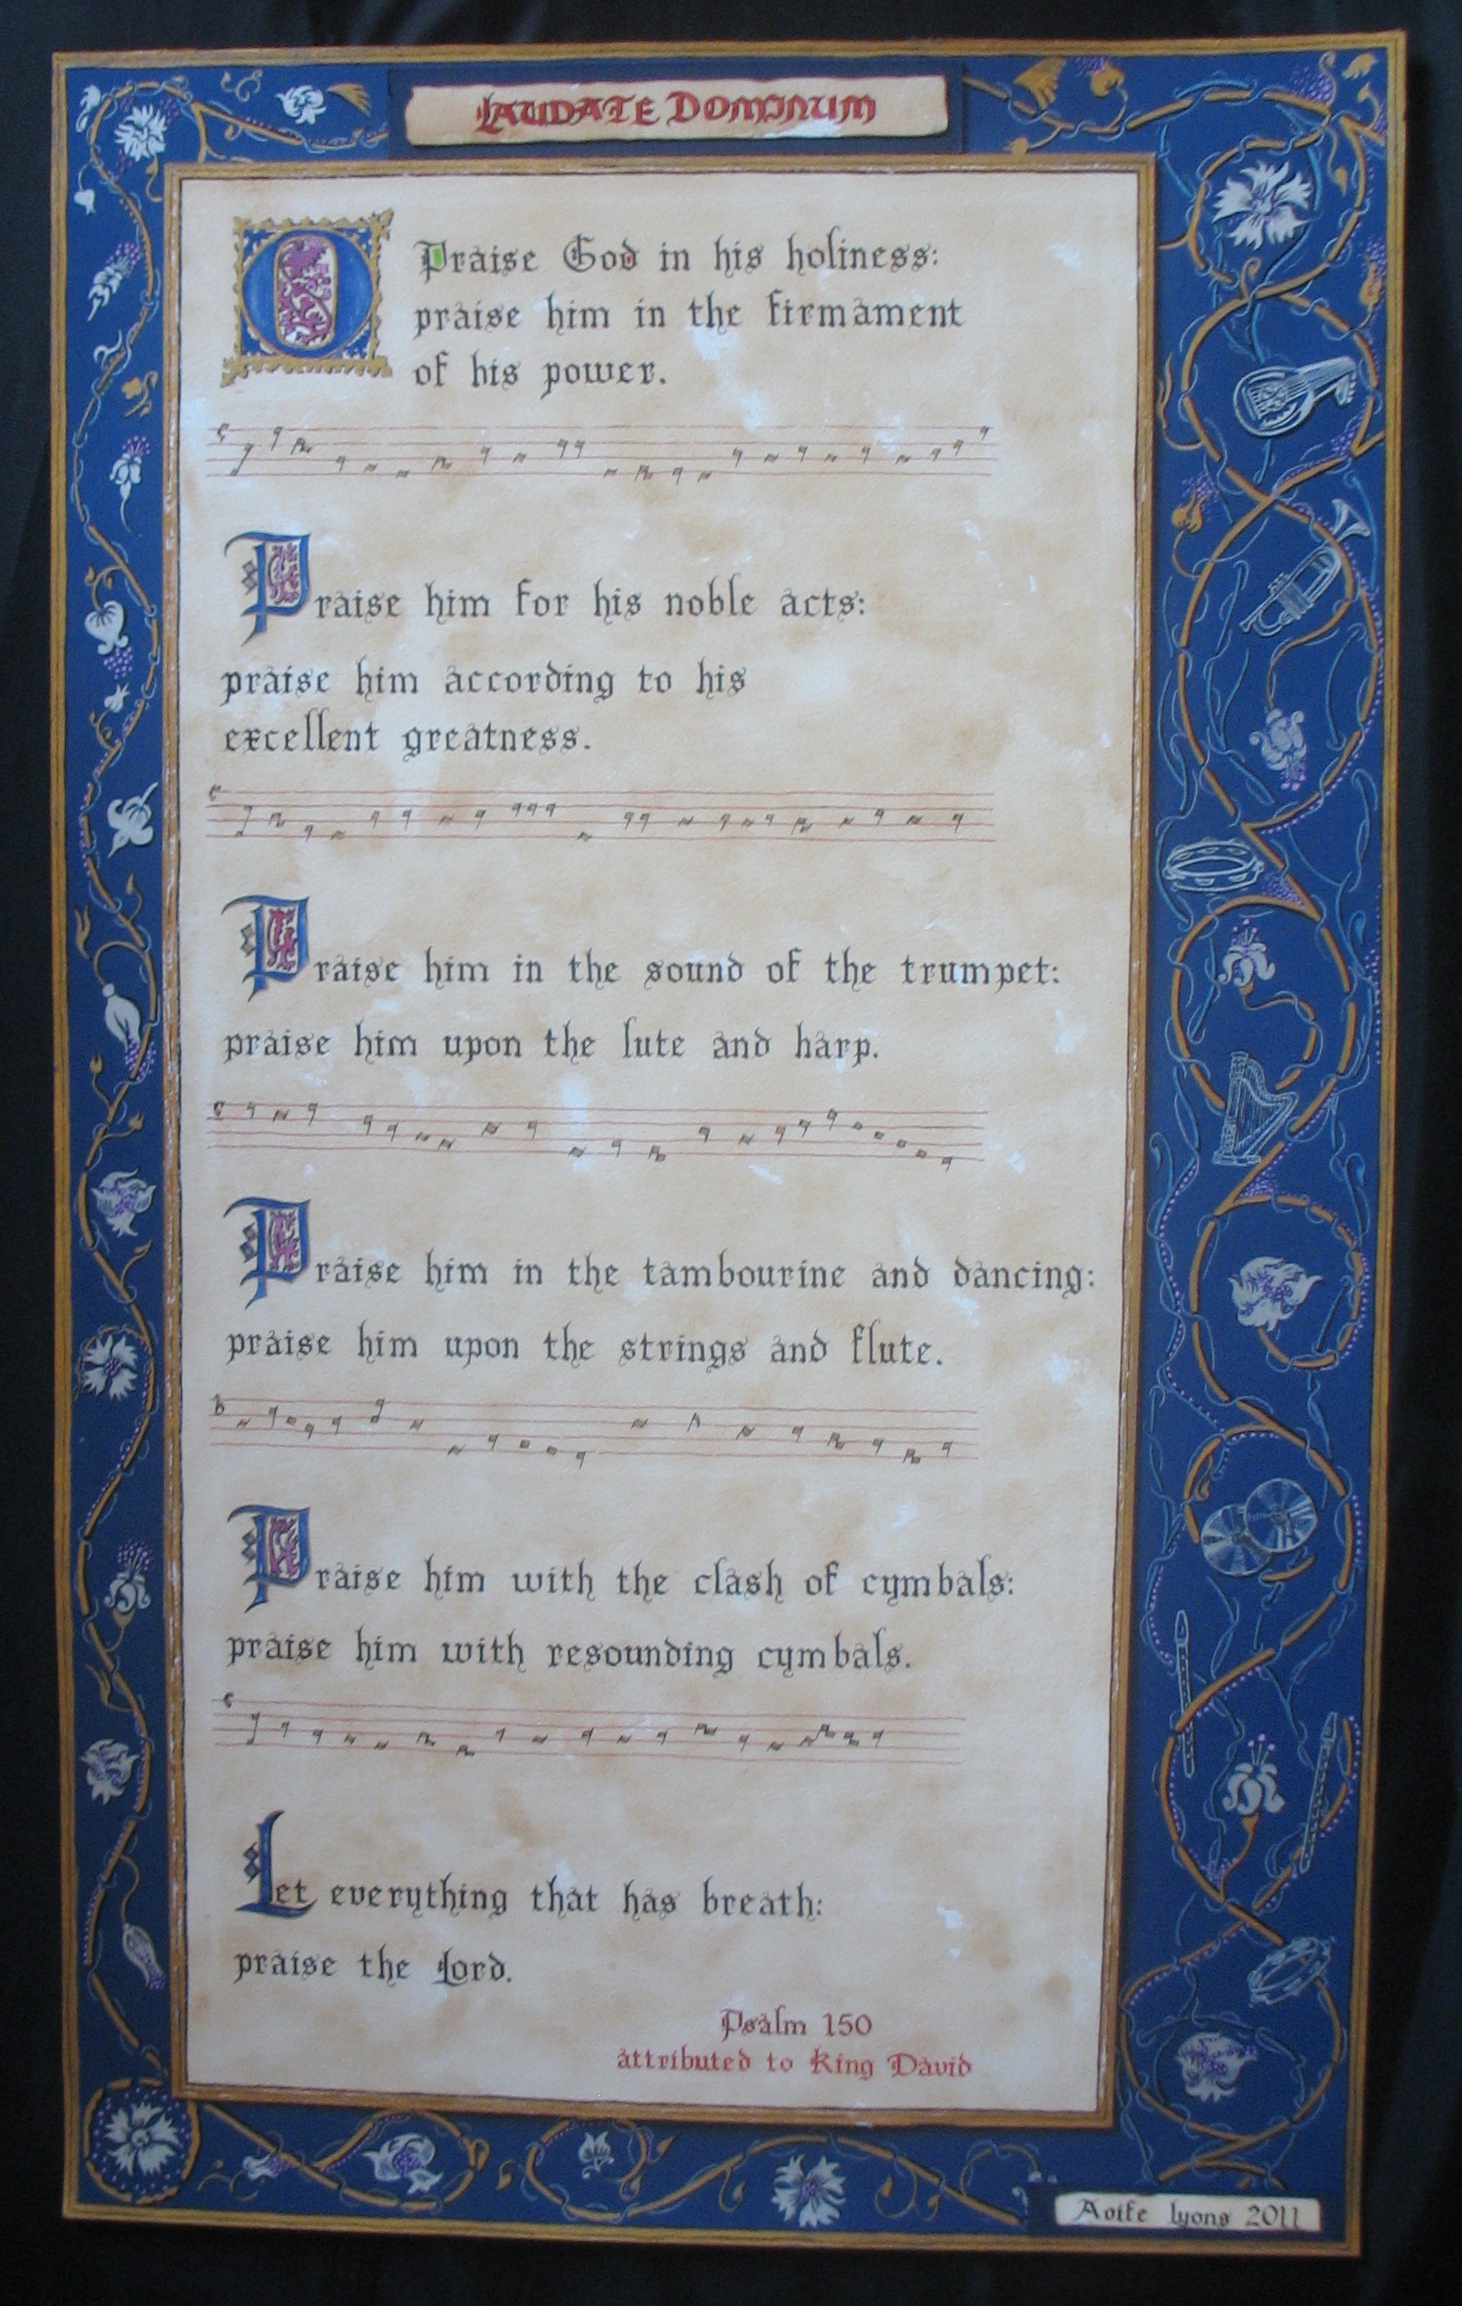 LAUDATE DOMINUM
O Praise God in his holiness:
praise him in the firmament
of his power.
Praise him for his noble acts:
praise him according to his
excellent greatness.
Praise him in the sound of the trumpet:
praise him upon the lute and harp.
Praise him in the tambourine and dancing:
praise him upon the strings and flute.
Praise him with the clash of cymbals:
praise him with resounding cymbals.
Let everything that has breath:
praise the Lord.
Psalm 150
attributed to King David
Aoife Lyons 2011